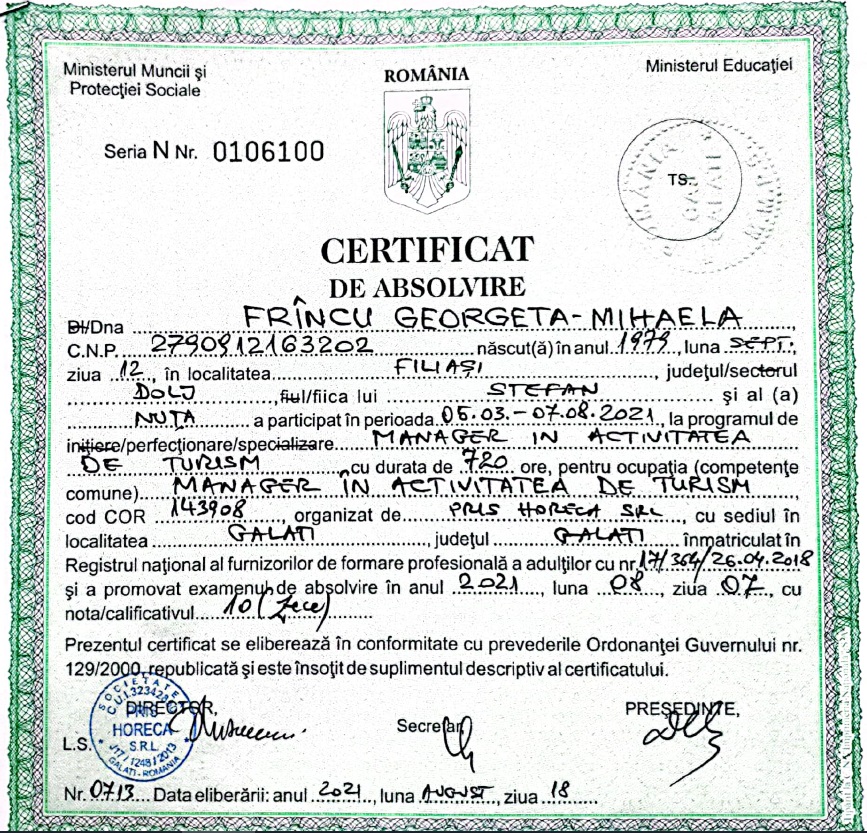 Ministerul Muncii și
Protecției Sociale
ROMÂNIA
Ministerul Educației
Seria N Nr. 0106100
TS.
CERTIFICAT
DE ABSOLVIRE
Dl/Dna FRÎNCU GEORGETA-MIHAELA,
C.N.P. 2790912163202 născut(ă) în anul 1979, luna SEPT.,
ziua 12, în localitatea FILIAȘI, județul/sectorul
DOLJ, fiul/fiica lui STEFAN și al (a)
NUȚA a participat în perioada 05.03.-07.08.2021, la programul de
inițiere/perfecționare/specializare MANAGER IN ACTIVITATEA
DE TURISM cu durata de 720 ore, pentru ocupația (competențe
comune) MANAGER ÎN ACTIVITATEA DE TURISM,
cod COR 143908 organizat de PRIS HORECA SRL, cu sediul în
localitatea GALATI, județul GALATI înmatriculat în
Registrul național al furnizorilor de formare profesională a adulților cu nr. 17/364/26.04.2018
și a promovat examenul de absolvire în anul 2021, luna 08, ziua 07, cu
nota/calificativul 10 (zece)
Prezentul certificat se eliberează în conformitate cu prevederile Ordonanței Guvernului nr.
129/2000, republicată și este însoțit de suplimentul descriptiv al certificatului.
DIRECTOR,
Secretar,
PREȘEDINTE,
L.S.
SOCIETATE
PRIS
HORECA
S.R.L.
J17/1248/2013
GALATI-ROMANIA
Nr. 0713 Data eliberării: anul 2021, luna AUGUST, ziua 18